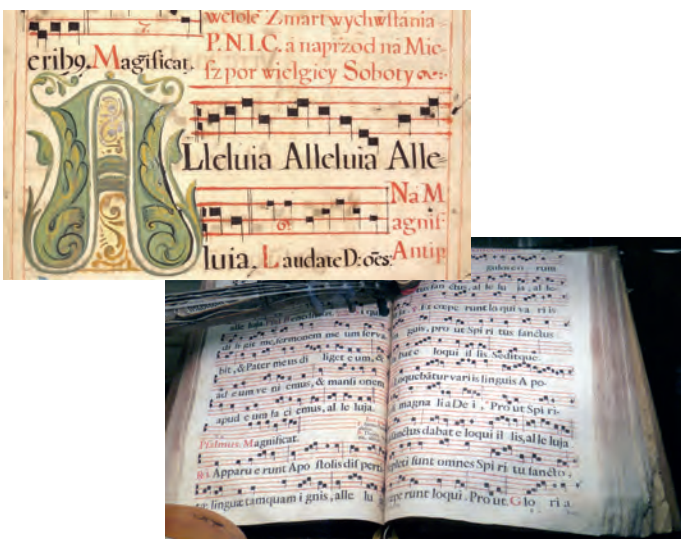 7.
wesołe Zmartwychwſtánia
P.N.I.C. a naprzod ná Mie-
ſzpor wielgiey Soboty
erib9. Magnificat.
ALleluia Alleluia Alle=
Ná M
agnif:
luia. Laudate D: oēs: Antip
alle luja.
bit, & Pater meus di liget e um, &
ad e um ve ni emus, & manſi onem
apud e um fa ci emus, al le luja.
Pſalmus. Magnificat.
Appa ru e runt Apo ſtolis diſ perti
linguæ tamquam i gnis, alle lu
rum
ſan ctus, al le lu ja, al le-
Et cœpe runt lo qui va ri is
guis, pro ut Spi ri tus ſanctus
bat e loqui il lis. Seditque.
loquebãtur variis linguis A po-
magna li a De i, Pro ut Spi ri-
ſanctus dabat e loqui il lis, al le luja
pleti ſunt omnes Spi ri tu ſancto,
pe runt loqui. Pro ut. Glo ri a